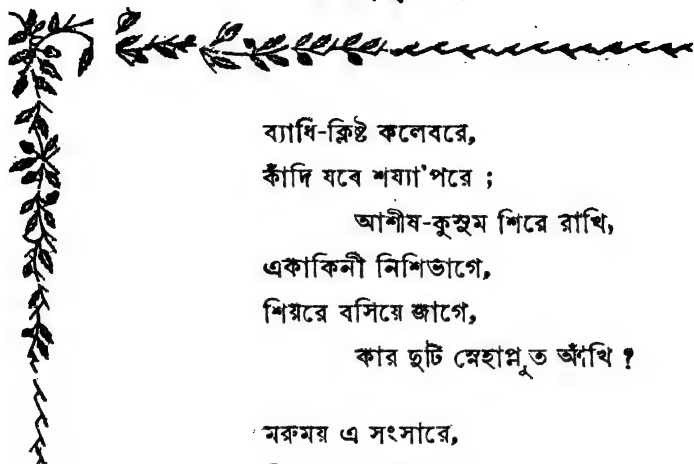 ব্যাধি-ক্লিষ্ট কলেবরে,
কাঁদি যবে শয্যা'পরে ;
আশীষ-কুসুম শিরে রাখি,
একাকিনী নিশিভাগে,
শিয়রে বসিয়ে জাগে,
কার দুটি স্নেহাপ্লুত আঁখি ?
মরুময় এ সংসারে,